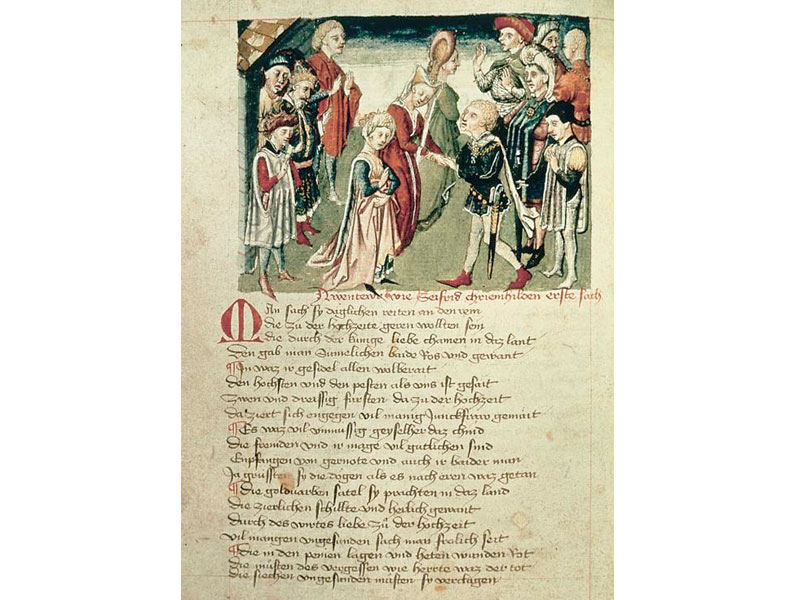 Awentewr wie Seifrid chriemhilden erste sach
Man sach sy däglichen reiten an den rein
die zu der hochzeite geren wollten sein
die durch der künige liebe chamen in daz lant
Den gab man Sümelichen baide Ros und gewant
In waz ir gesidel allen wolberait
den höchsten und den pesten als uns ist gesait
Zwen und dreissig fursten da zu der hochzeit
da ziert sich engegen vil manig Junckfraw gemait
Es waz vil unmussig geyselher daz chind
die fremden und ir mage vil gutlichen sind
Enpfangen von gernote und auch ir baider man
Ja grüssten sy die degen als es nach eren waz getan
die goldvarben satel sy prachten in daz land
die zierlichen schillte und herlich gewant
durch des wirtes liebe zů der hochzeit
vil mangen ungesunden sach man frolich seit
die in den peten lagen und heten wunden not
die můsten des vergessen wie herrte waz der tot
die siechen ungesunden můsten sy verclagen